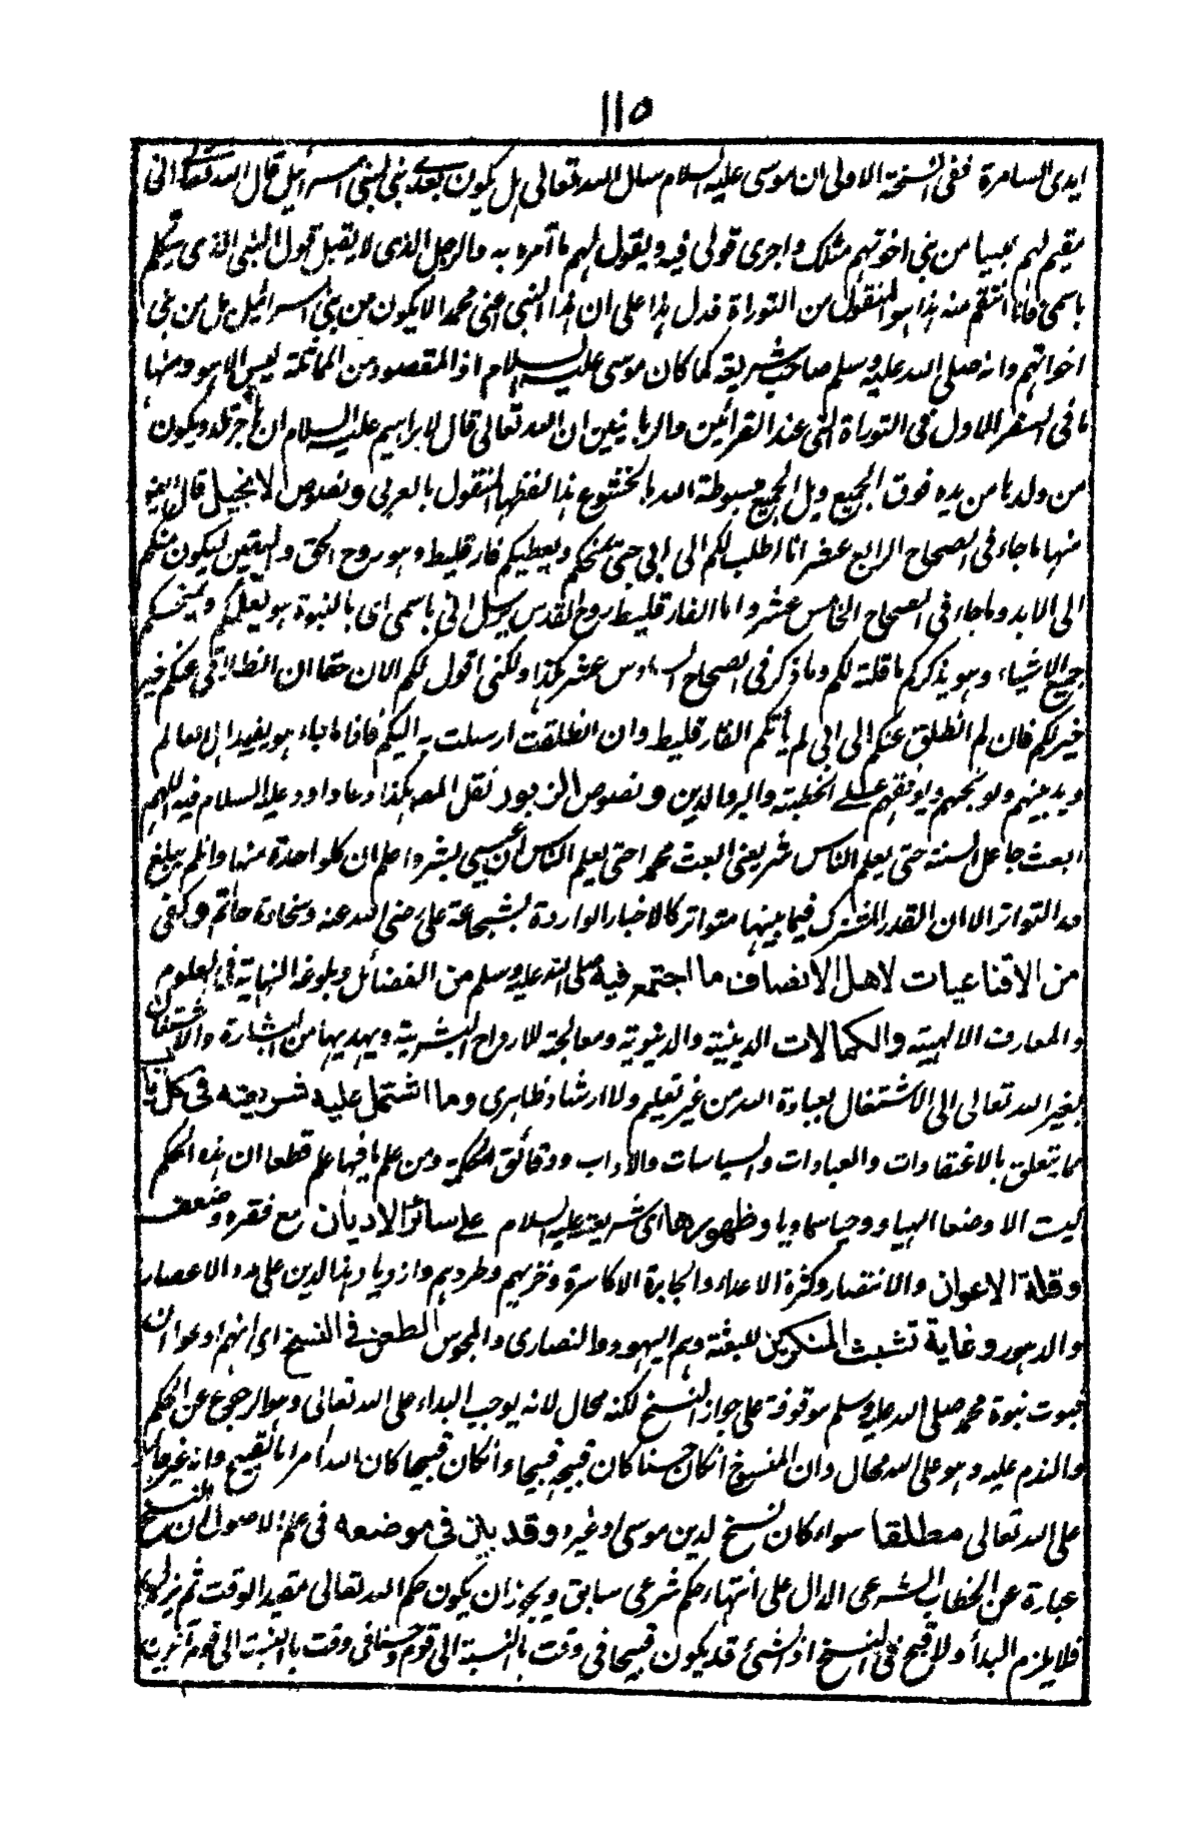 ١١٥
ايدى السامرة ففى النسخة الاولى ان موسى عليه السلام سال الله تعالى هل يكون بعدى نبى لبنى اسرائيل قال الله تعالى انى
مقيم لهم نبيا من بنى اخوتهم مثلك واجرى قولى فيه ويقول لهم ما آمره به والرجل الذى لا يقبل قول النبى الذى يتكلم
باسمى فانا انتقم منه هذا هو المنقول من التوراة فدل هذا على ان هذا النبى اعنى محمد الا يكون من بنى اسرائيل بل من بنى
اخواتهم وانه صلى الله عليه وسلم صاحب شريعة كما كان موسى عليه السلام اذ المقصود من المماثلة ليس الا هو ومنها
ما فى السفر الاول فى التوراة التى عند القرائين والربانيين ان الله تعالى قال لابراهيم عليه السلام ان هاجر تلد ويكون
من ولدها من يده فوق الجميع ويد الجميع مبسوطة اليه بالخشوع هذا لفظها المنقول بالعربى ونصوص الانجيل قال
منها ما جاء فى الصحاح الرابع عشر انا اطلب لكم الى ابى حتى يمنحكم ويعطيكم فارقليط وهو روح الحق واليقين ليكون معكم
الى الابد وما جاء فى الصحاح الخامس عشر واما الفارقليط روح القدس يرسل ابى باسمى اى بالنبوة هو يعلمكم ويمنحكم
جميع الاشياء وهو يذكركم ما قلته لكم وما ذكر فى الصحاح السادس عشر هكذا ولكنى اقول لكم الان حقا ان انطلاقى عنكم خير
خير لكم فان لم انطلق عنكم الى ابى لم يأتكم الفارقليط وان انطلقت ارسلت به اليكم فاذا ما جاء هو يفيد اهل العالم
ويدينهم ويوبخهم ويوقفهم على الخطيئة والبر والدين ونصوص الزبور نقل المص هكذا دعا داود عليه السلام فيه اللهم
ابعث جاعل السنة حتى يعلم الناس شر يعنى ابعث محمدا حتى يعلم الناس ان عيسى بشر واعلم ان كلواحدة منها وانلم يبلغ
حد التواتر الا ان القدر المشترك فيما بينها متواتر كالاخبار الواردة بشجاعة على رضى الله عنه وسخاوة حاتم وكفى
من الاقناعيات لاهل الانصاف ما اجتمع فيه صلى الله عليه وسلم من الفضائل وبلوغه النهاية فى العلوم
والمعارف الالهية والكمالات الدينية والدنيوية ومعالجة للارواح البشرية ويهديها من البشارة والاشتغال
بغير الله تعالى الى الاشتغال بعبادة الله من غير تعليم ولا ارشاد ظاهرى وما اشتمل عليه شريعته فى كل باب
مما يتعلق بالاعتقادات والعبادات والسياسات والآداب ودقائق الحكمة ومن علم ما فيها علم قطعا ان هذه الحكم
ليست الا وضعا الهيا ووحيا سماويا وظهورها اى شريعته عليه السلام على سائر الاديان مع فقره وضعف
وقلة الاعوان والانتصار وكثرة الاعداء والجابرة الاكاسرة وخزيهم وطردهم وازدياد هذا الدين على مدد الاعصار
والدهور وغاية تشبث المنكرين للبعثة وهم اليهود والنصارى والمجوس الطعن فى النسخ اى انهم ادعوا ان
ثبوت نبوة محمد صلى الله عليه وسلم موقوفة على جواز النسخ لكنه محال لانه يوجب البداء على الله تعالى وهو الرجوع عن الحكم
والندم عليه وهو على الله محال وان المنسوخ انكان حسنا كان قبيحه قبيحا وانكان قبيحا كان الله آمرا بالقبيح وانه غير جائز
على الله تعالى مطلقا سواء كان نسخ لدين موسى او غيره وقد بان فى موضعه فى علم الاصول ان النسخ
عبارة عن الخطاب الشرعى الدال على انتهاء حكم شرعى سابق ويجوز ان يكون حكم الله تعالى مقيد الوقت ثم يزل
فلا يلزم البدأ ولا قبح فى النسخ اذ الشئ قد يكون قبيحا فى وقت بالنسبة الى قوم وحسنا فى وقت بالنسبة الى قوم آخرين